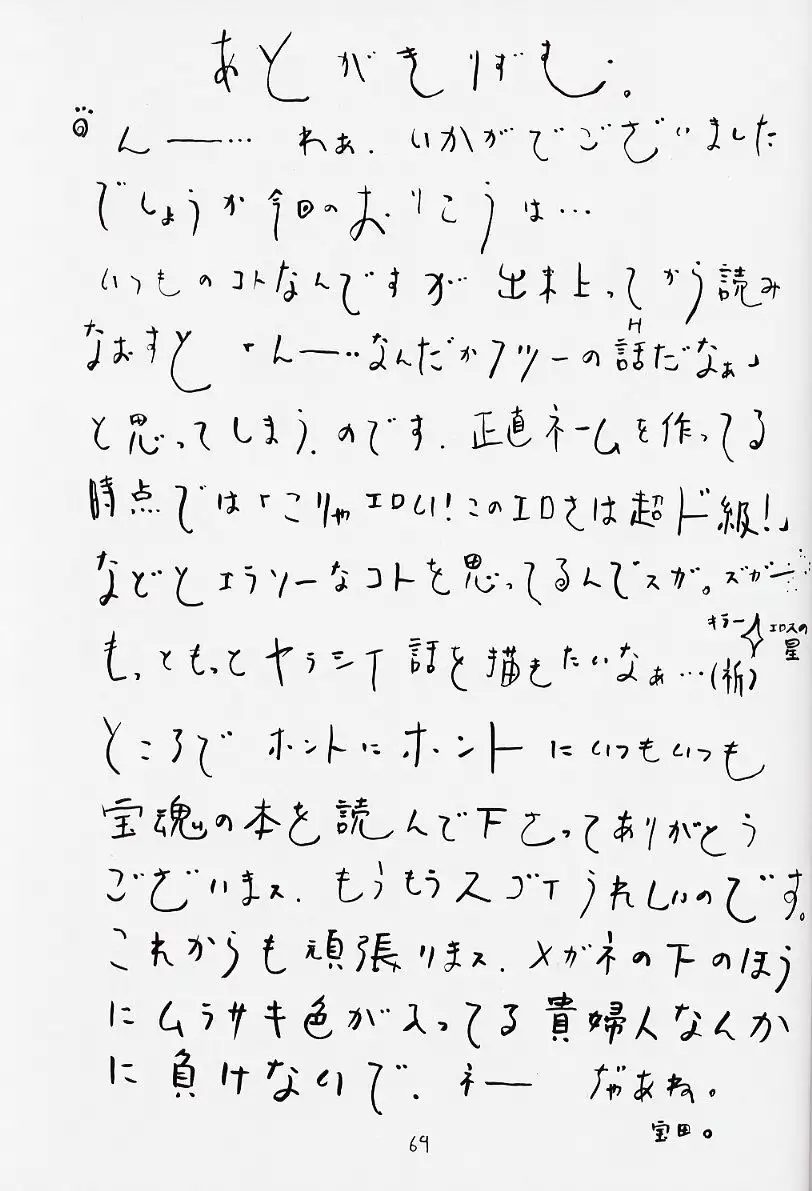 あとがきりずむ。
んー… ねぁ. いかがでございました
でしょうか今回のおりこうは…
いつものコトなんですが 出来上ってから読み
なおすと「んー‥なんだかフツーの話だなぁ」
H
と思ってしまう.のです. 正直ネームを作ってる
時点では「こりゃエロい!このエロさは超ド級!」
などとエラソーなコトを思ってるんでスガ。ズガー
もっともっとヤラシイ話を描きたいなぁ…(祈)
キラー
エロスの星
ところで ホントにホントにいつもいつも
宝魂の本を読んで下さってありがとう
ございまス. もうもうスゴイうれしいのです。
これからも頑張りまス. メガネの下のほう
にムラサキ色が入ってる貴婦人なんか
に負けないで. ネー ぢゃあね。
宝田。
64